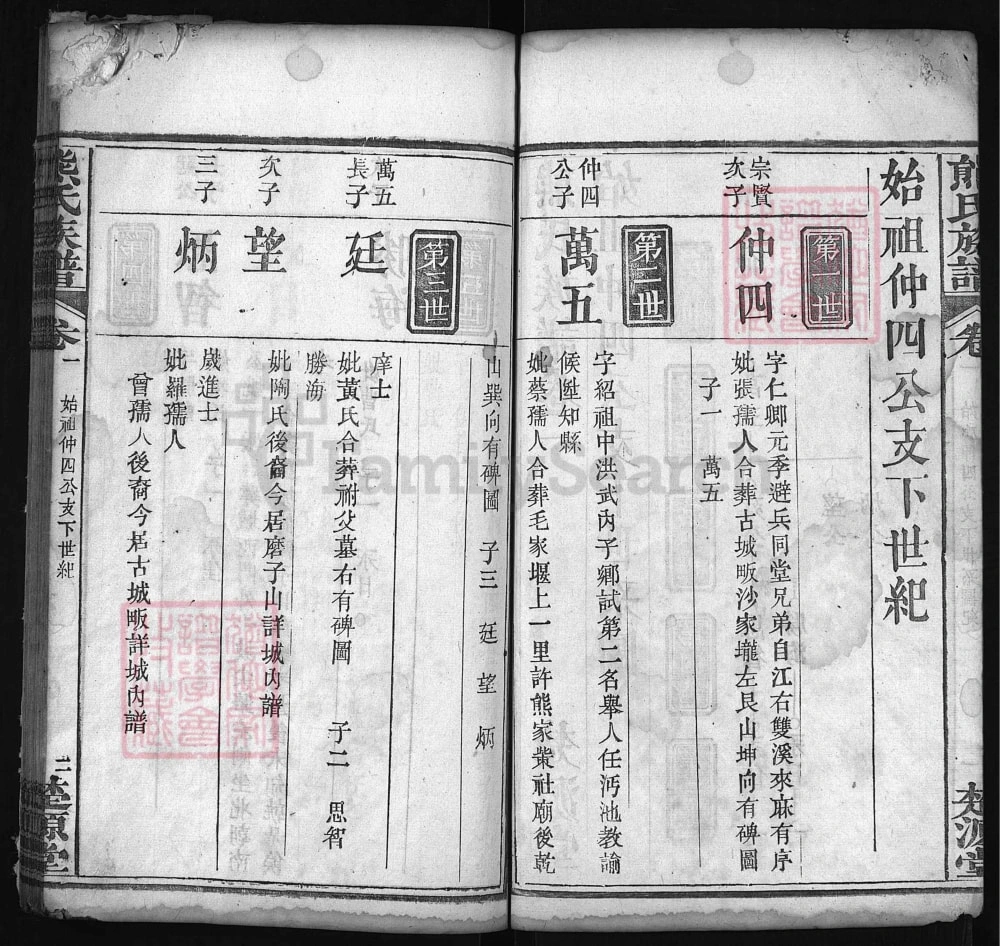 熊氏族譜
卷
始祖仲四公支下世紀
第一世
宗賢次子
仲四
字仁卿元季避兵同堂兄弟自江右雙溪來麻有序
妣張孺人合葬古城畈沙家壠左艮山坤向有碑圖
子一 萬五
第二世
仲四公子
萬五
字紹祖中洪武丙子鄉試第二名舉人任沔池教諭
候陞知縣
妣蔡孺人合葬毛家堰上一里許熊家柴社廟後乾
山巽向有碑圖 子三 廷 望 炳
第三世
萬五長子
廷
庠士
妣黃氏合葬祔父墓右有碑圖 子二 思智
勝海
次子
望
妣陶氏後裔今居磨子山詳城內譜
三子
炳
歲進士
妣羅孺人
曾孺人後裔今居古城畈詳城內譜
熊氏族譜
卷一
始祖仲四公支下世紀
二
楚源堂
Family Search